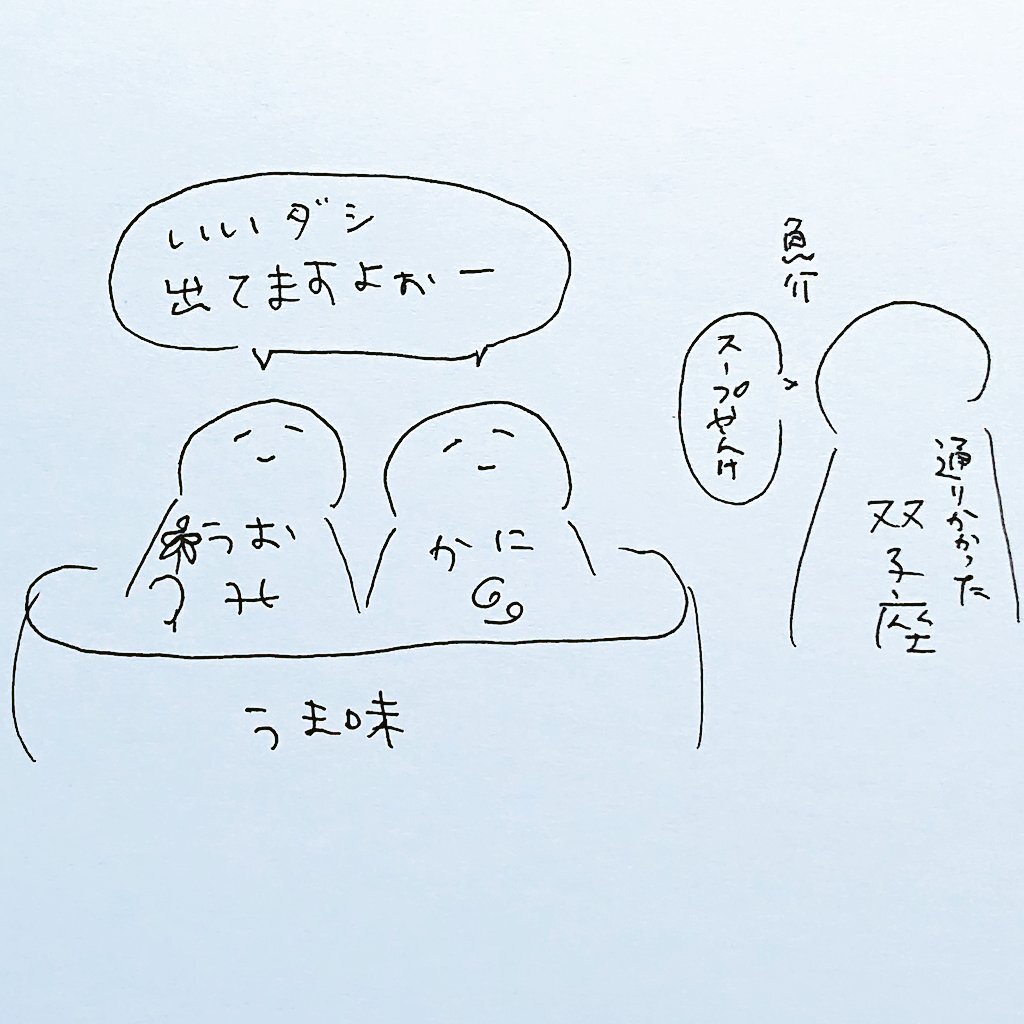 いいダシ
出てますよぉー
うお
♓
かに
♋
うま味
魚介
スープやんけ
通りかかった
双子座